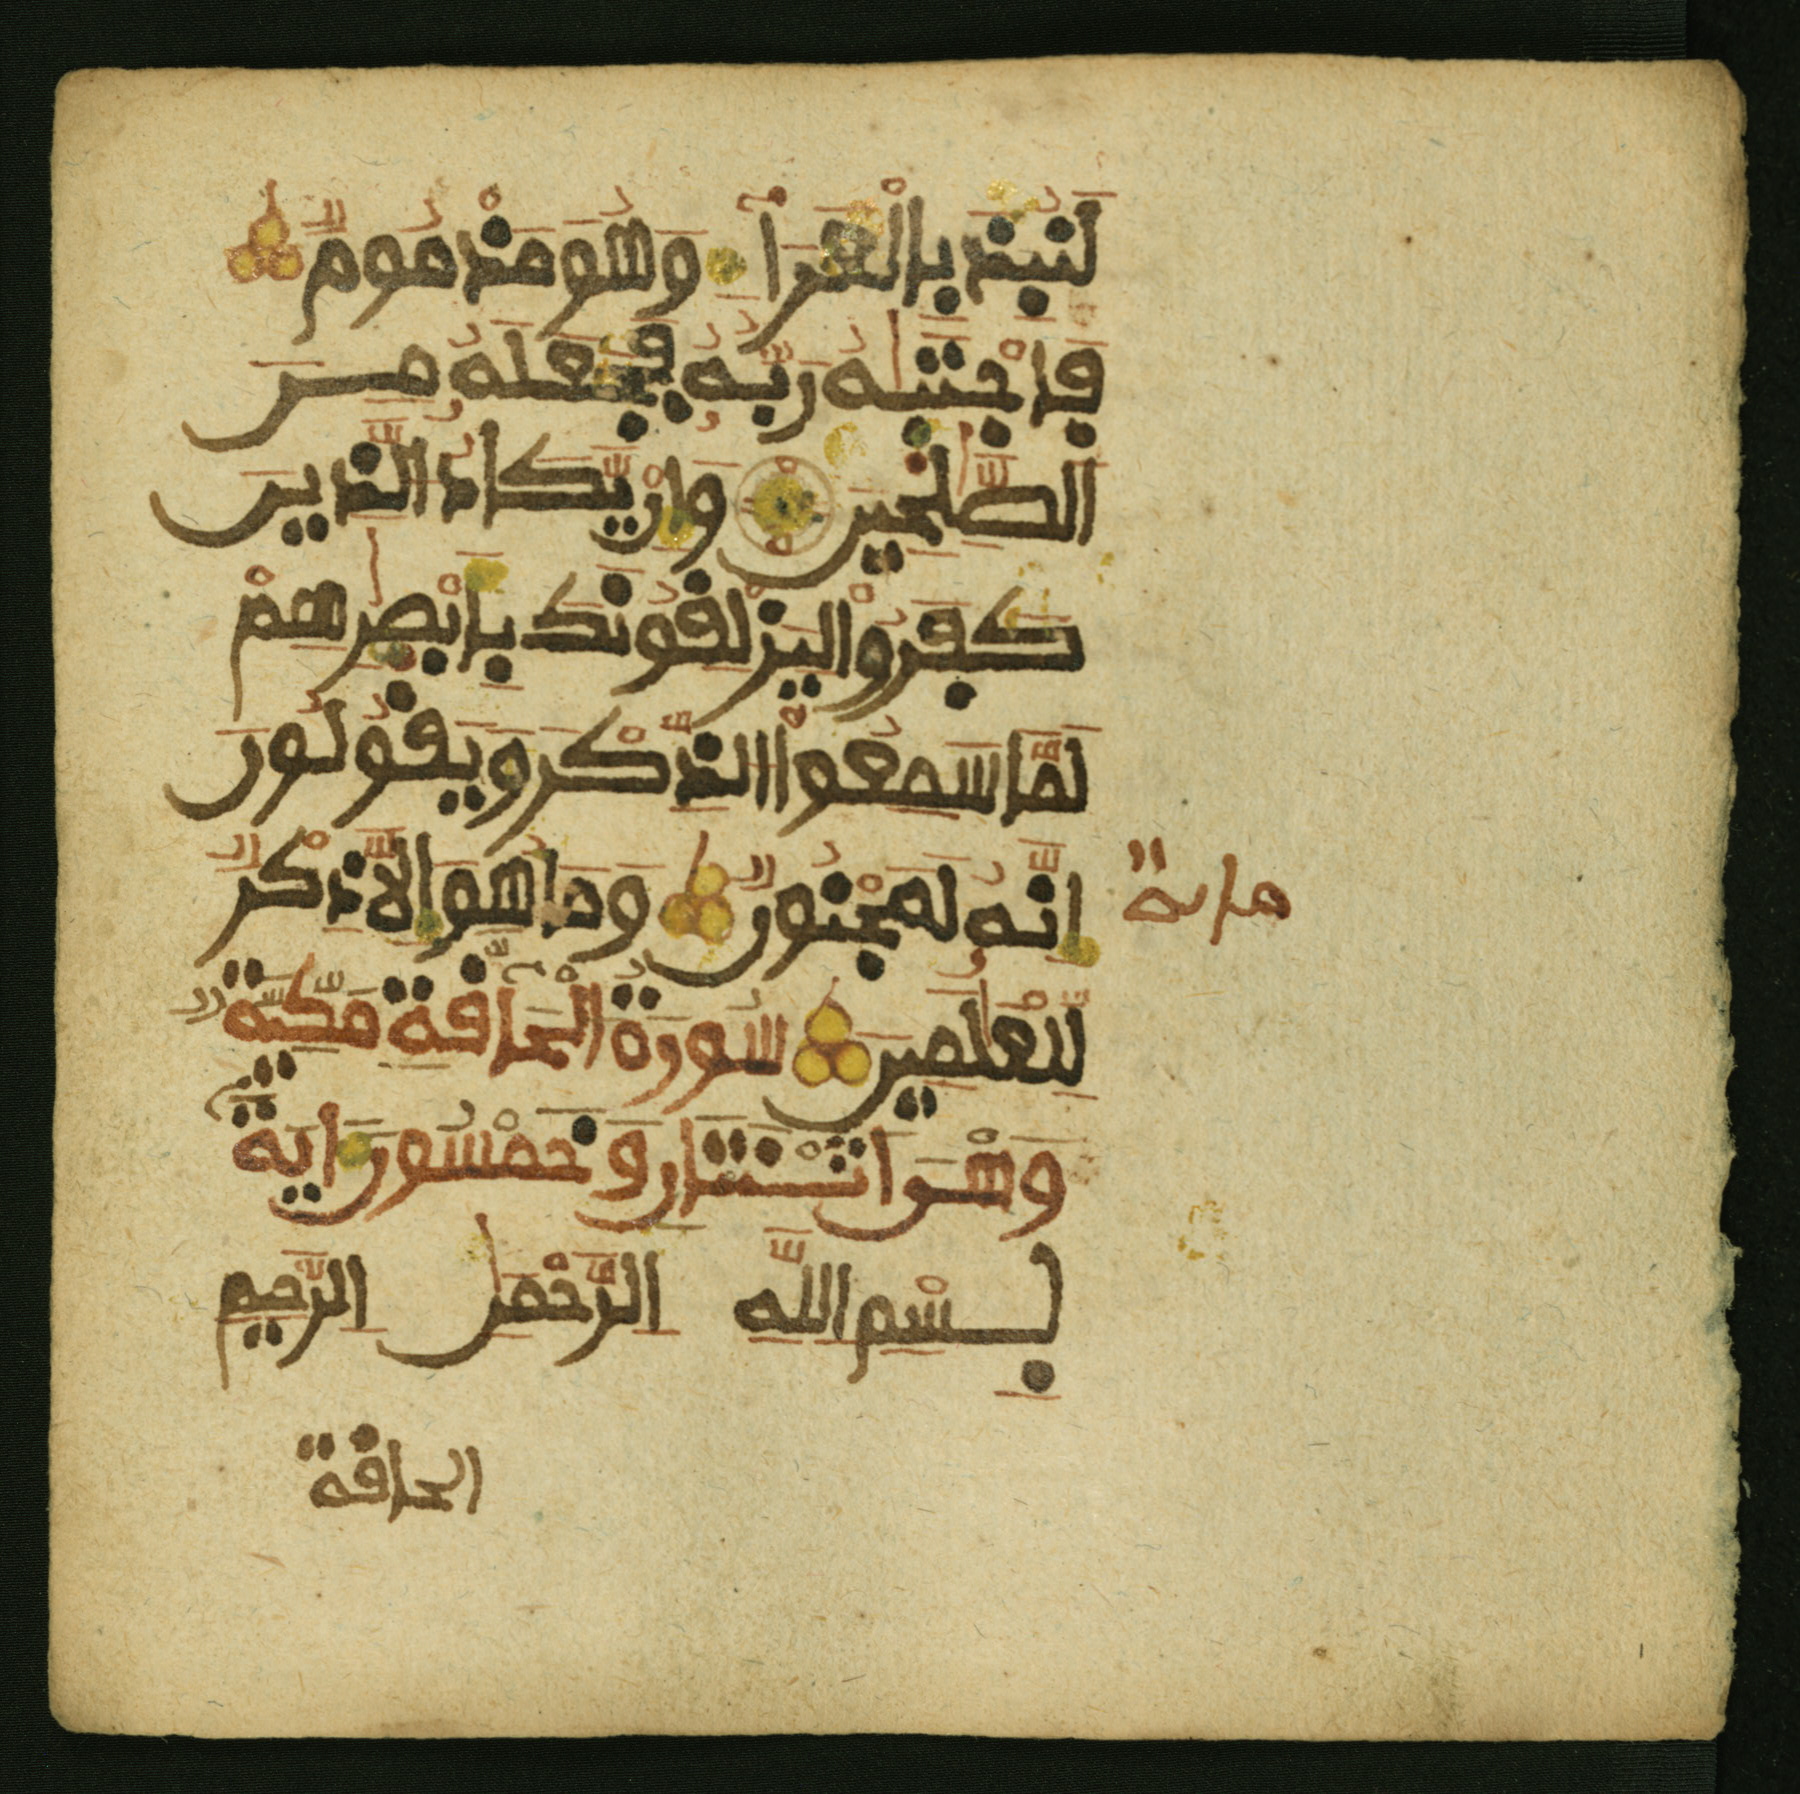 لَنُبِذَ بِالْعَرَآءِ وَهُوَ مَذْمُومٌ
فَاجْتَبٰهُ رَبُّهُ فَجَعَلَهُ مِنَ
الصَّٰلِحِينَ وَإِنْ يَّكَادُ الَّذِينَ
كَفَرُوا لَيَزْلِقُونَكَ بِأَبْصٰرِهِمْ
لَمَّا سَمِعُوا الذِّكْرَ وَيَقُولُونَ
إِنَّهُ لَمَجْنُونٌ وَمَا هُوَ إِلَّا ذِكْرٌ
مائة
لِّلْعٰلَمِينَ سُورَةُ الْحَآقَّةِ مَكِّيَّةٌ
وَهْيَ اثْنَتَانِ وَخَمْسُونَ ايَةً
بِسْمِ اللَّهِ الرَّحْمٰنِ الرَّحِيمِ
الحاقة